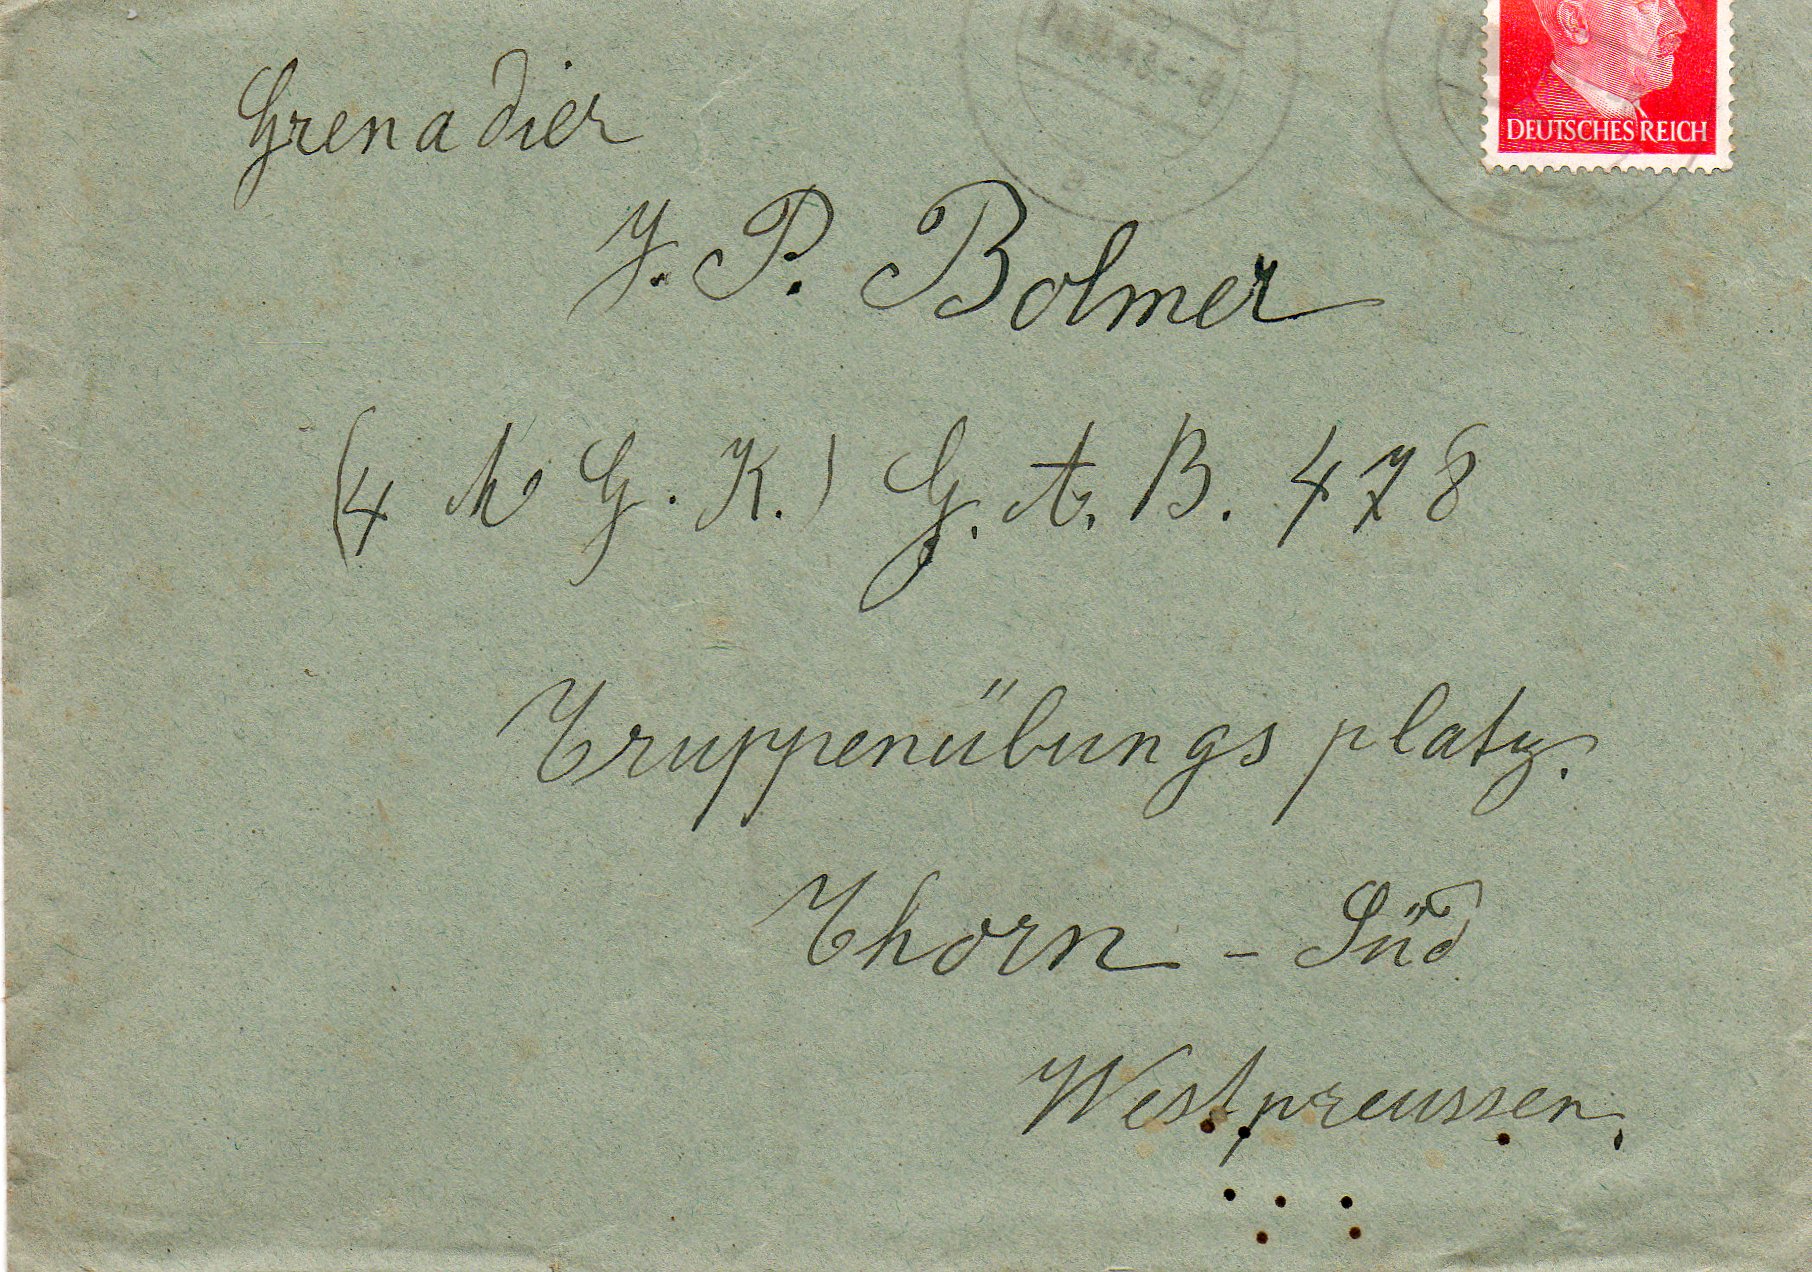 DEUTSCHES REICH
Grenadier
J. P. Bolmer
(4 M G. K.) G. A. B. 478
Truppenübungsplatz.
Thorn - Süd
Westpreussen.